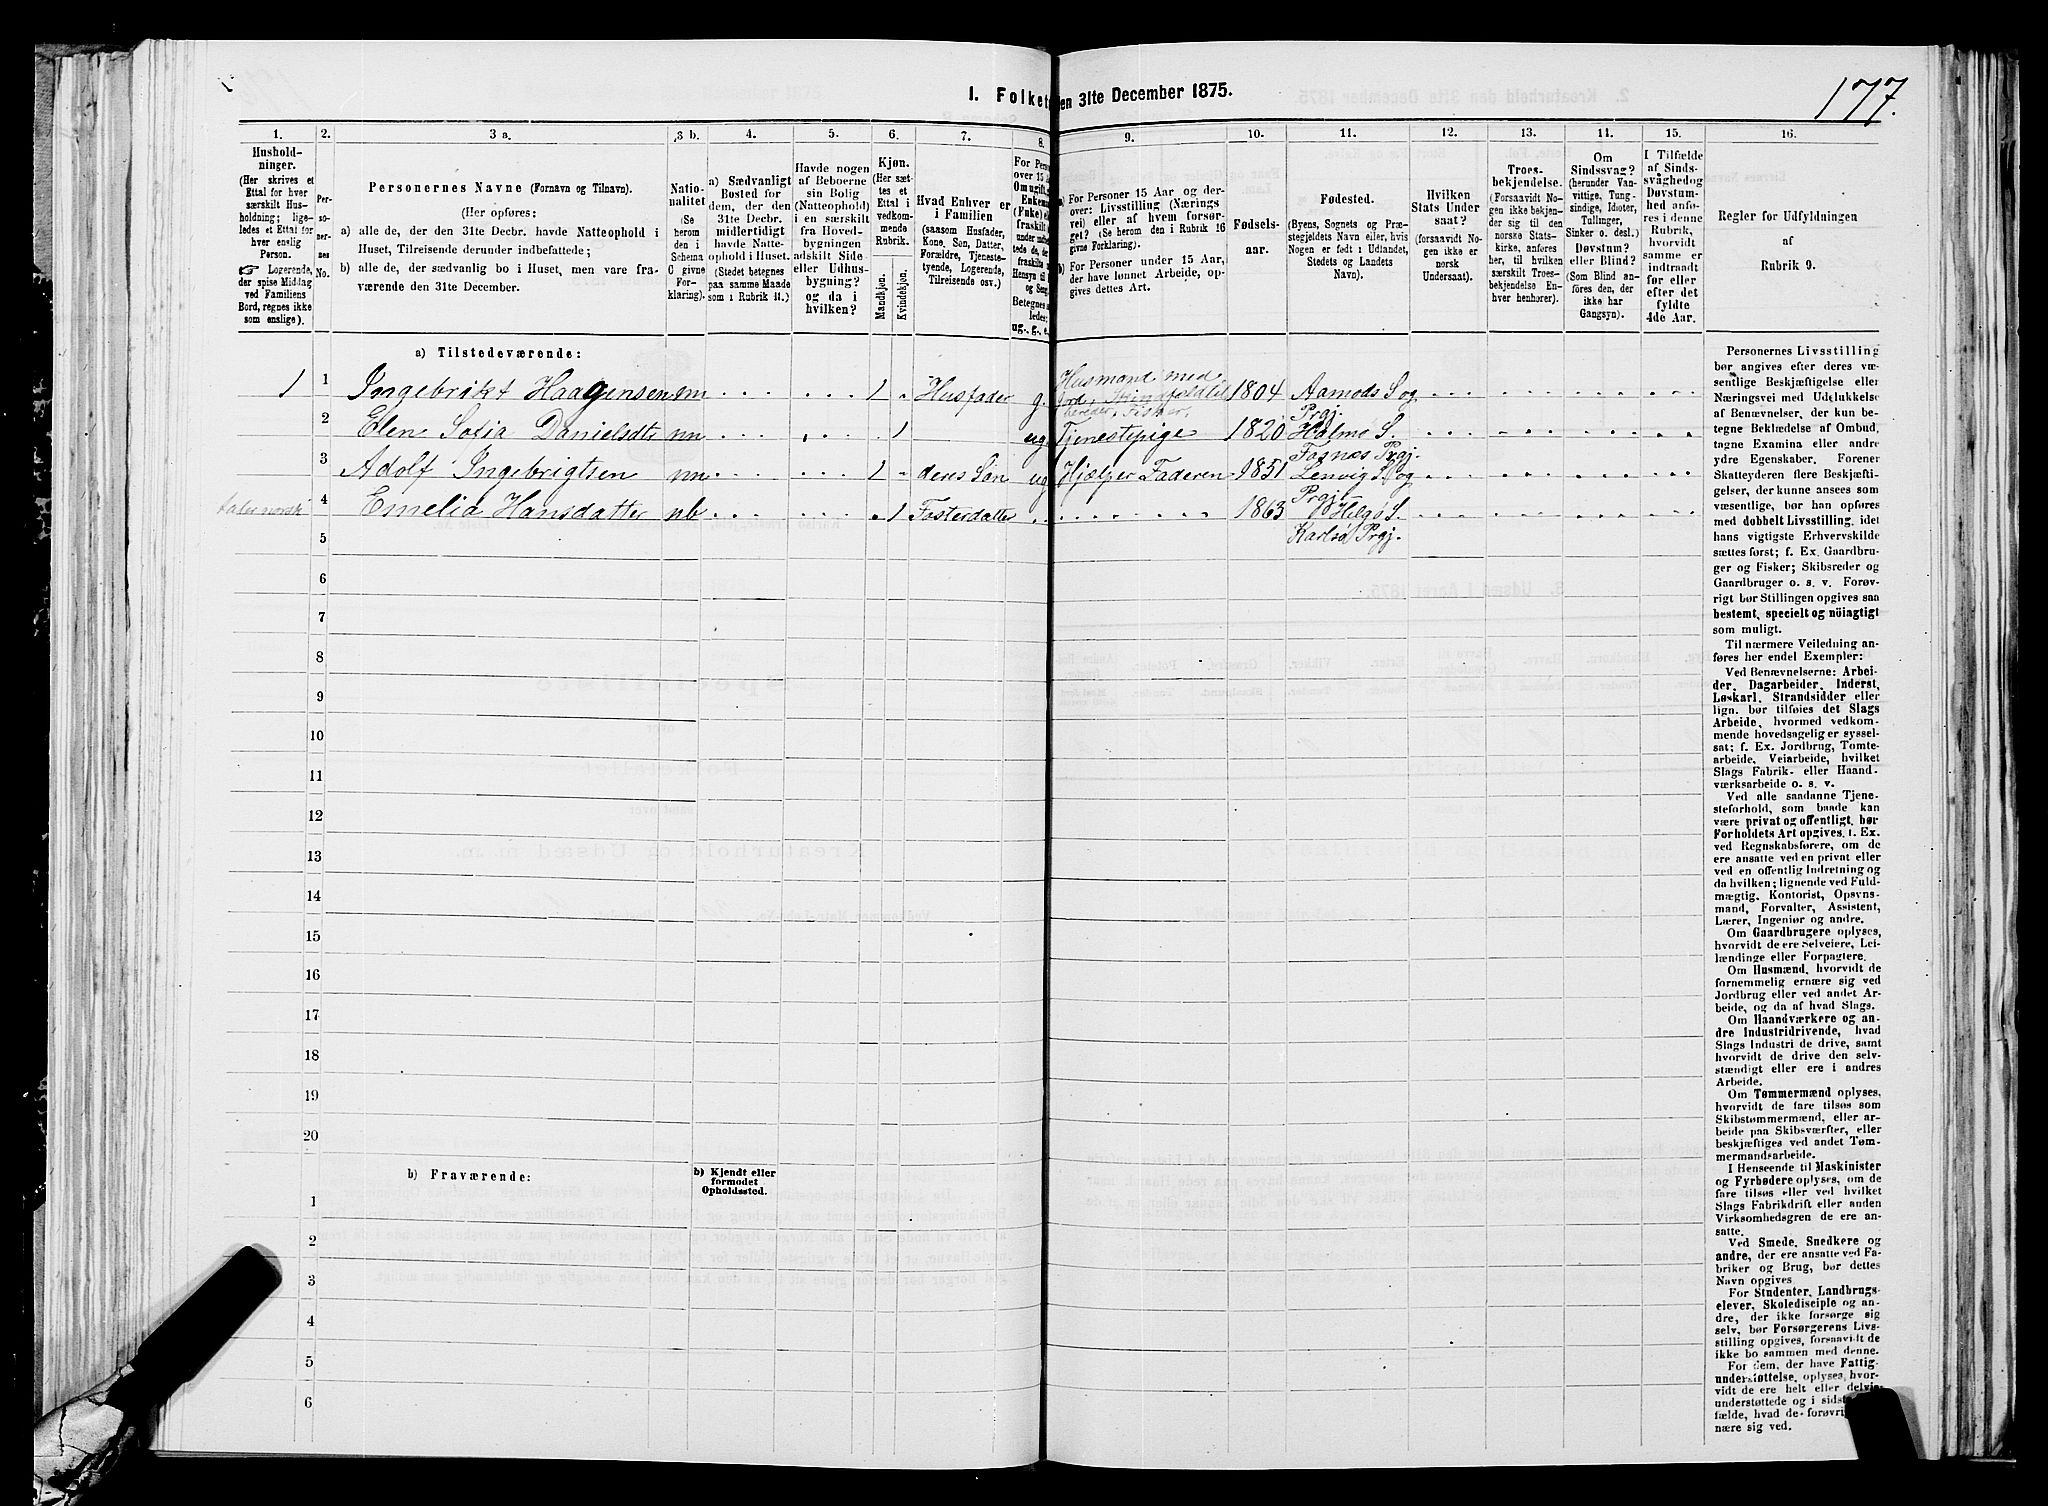 I. Folket
en 31te December 1875.
177.
1.
2.
3 a.
3 b.
4.
5.
6.
7.
8.
9.
10.
11.
12.
13.
11.
15.
16.
Hushold-
ninger.
(Her skrives et
Ettal for hver
særskilt Hus-
holdning; lige-
ledes et Ettal for
hver enslig
Person.
☞ Logerende,
der spise Middag
ved Familiens
Bord, regnes ikke
som enslige).
Per-
so-
ner-
nes
No.
Personernes Navne (Fornavn og Tilnavn).
(Her opføres:
a) alle de, der den 31te Decbr. havde Natteophold i
Huset, Tilreisende derunder indbefattede;
b) alle de, der sædvanlig bo i Huset, men vare fra-
værende den 31te December.
Natio-
nalitet
(Se
herom
den i
Schema
C givne
For-
klaring).
a) Sædvanligt
Bosted for
dem, der den
31te Decbr.
midlertidigt
havde Natte-
ophold i Huset.
(Stedet betegnes
paa samme Maade
som i Rubrik 11.)
Havde nogen
af Beboerne
sin Bolig
(Natteophold)
i en særskilt
fra Hoved-
bygningen
adskilt Side-
eller Udhus-
bygning?
og da i
hvilken?
Kjøn.
(Her sæt-
tes et
Ettal i
vedkom-
mende
Rubrik.
Mandkjøn.
Kvindekjøn.
Hvad Enhver er
i Familien
(saasom Husfader,
Kone, Søn, Datter,
Forældre, Tjeneste-
tyende, Logerende,
Tilreisende osv.)
For Perso
over 15 A
Om ugift,
Enkema
(Fnke) el
fraskilt
under
Hensyn til
og Seng
Betegnes
ledes:
ug., g., e.
a) For Personer 15 Aar og der-
over: Livsstilling (Nærings
vei) eller af hvem forsør-
get? (Se herom den i Rubrik 16
givne Forklaring).
b) For Personer under 15 Aar,
der have lønnet Arbeide, op-
gives dettes Art.
Fødsels-
aar.
Fødested.
(Byens, Sognets og Præ-
stegjeldets Navn eller, hvis
Nogen er født i Udlandet,
Stedets og Landets
Navn).
Hvilken
Stats Under
saat?
(forsaavidt No-
gen ikke er
norsk
Undersaat).
Troes-
bekjendelse.
(Forsaavidt No-
gen ikke bekjen-
der sig til den
norske Stats-
kirke, anføres
her, til hvilken
særskilt Troes-
bekjendelse En-
hver henhører).
Om
Sindssvag?
(herunder Van-
vittige, Tung-
sindige, Idioter,
Tullinger,
Sinker o. desl.)
Døvstum?
eller Blind?
(Som Blind an-
føres den, der
ikke har
Gangsyn).
I Tilfælde
af Sinds-
svaghed og
Døvstum-
hed anføres
i denne
Rubrik,
hvorvidt
samme er
indtraadt
før eller
efter det
fyldte
4de Aar.
Regler for Udfyldningen
af
Rubrik 9.
a) Tilstedeværende:
1 1 Ingebrikt Haagensen nm 1 Husfader g. Husmand med Jord, 1804 Aamods S og Prgj.
Fisker,
2 Elen Sofia Danielsdtr nn 1 ug Tjenestepige 1820 Halmø S. Fosnes Prgj.
3 Adolf Ingebrigtsen nn 1 deres Søn ug Hjælper Faderen 1851 Lenvig S og Prgj.
taler norsk 4 Emelia Hansdatter nb 1 Fosterdatter 1863 Helgø S.
Karlsø Prgj.
5
6
7
8
9
10
11
12
13
14
15
16
17
18
19
20
b) Fraværende:
b) Kjendt eller
formodet
Opholdssted.
1
2
3
4
5
6
Personernes Livsstilling
bør angives efter deres væ-
sentlige Beskjæftigelse eller
Næringsvei med Udelukkelse
af Benævnelser, der kun be-
tegne Beklædelse af Ombud,
tagne Examina eller andre
ydre Egenskaber. Forener
Skatteyderen flere Beskjæfti-
gelser, der kunne ansees som
væsentlige, bør han opføres
med dobbelt Livsstilling, idet
hans vigtigste Erhvervskilde
sættes først; f. Ex. Gaardbru-
ger og Fisker; Skibsreder og
Gaardbruger o. s. v. Forøv-
rigt bør Stillingen opgives saa
bestemt, specielt og nöiagtigt
som muligt.
Til nærmere Veiledning an-
føres her endel Exempler:
Ved Benævnelserne: Arbei-
der, Dagarbeider, Inderst,
Løskarl, Strandsidder eller
lign. bør tilføies det Slags
Arbeide, hvormed vedkom-
mende hovedsagelig er syssel-
sat; f. Ex. Jordbrug, Tomte-
arbeide, Veiarbeide, hvilket
Slags Fabrik- eller Haand-
værksarbeide o. s. v.
Ved alle saadanne Tjene-
steforhold, som baade kan
være privat og offentligt, bør
Forholdets Art opgives, f. Ex.
ved Regnskabsførere, om de
ere ansatte ved en privat eller
ved en offentlig Indretning og
da hvilken; lignende ved Fuld-
mægtig, Kontorist, Opsyns-
mand, Forvalter, Assistent,
Lærer, Ingeniør og andre.
Om Gaardbrugere oplyses,
hvorvidt de ere Selveiere, Lei-
lændinge eller Forpagtere.
Om Husmænd, hvorvidt de
fornemmelig ernære sig ved
Jordbrug eller ved andet Ar-
beide, og da af hvad Slags.
Om Haandværkere og an-
dre Industridrivende, hvad
Slags Industri de drive, samt
hvorvidt de drive den selv-
stændigt eller ere i andres
Arbeide.
Om Tømmermænd oplyses,
hvorvidt de fare tilsøs som
Skibstømmermænd, eller ar-
beide paa Skibsværfter, eller
beskjæftiges ved andet Tøm-
mermandsarbeide.
I Henseende til Maskinister
og Fyrbødere oplyses, om de
fare tilsøs eller ved hvilket
Slags Fabrikdrift eller anden
Virksomhedsgren de ere an-
satte.
Ved Smede, Snedkere og
andre, der ere ansatte ved Fa-
briker og Brug, bør dettes
Navn opgives
For Studenter, Landbrugs-
elever, Skoledisciple og an-
dre, der ikke forsørge sig
selv, bør Forsørgerens Livs-
stilling opgives, forsaavidt de
ikke bo sammen med denne.
For dem, der have Fattig-
understøttelse, oplyses, hvor-
vidt de ere helt eller delvis
understøttede og i sidst
fælde, hvad de forøvri
nære sig ved.